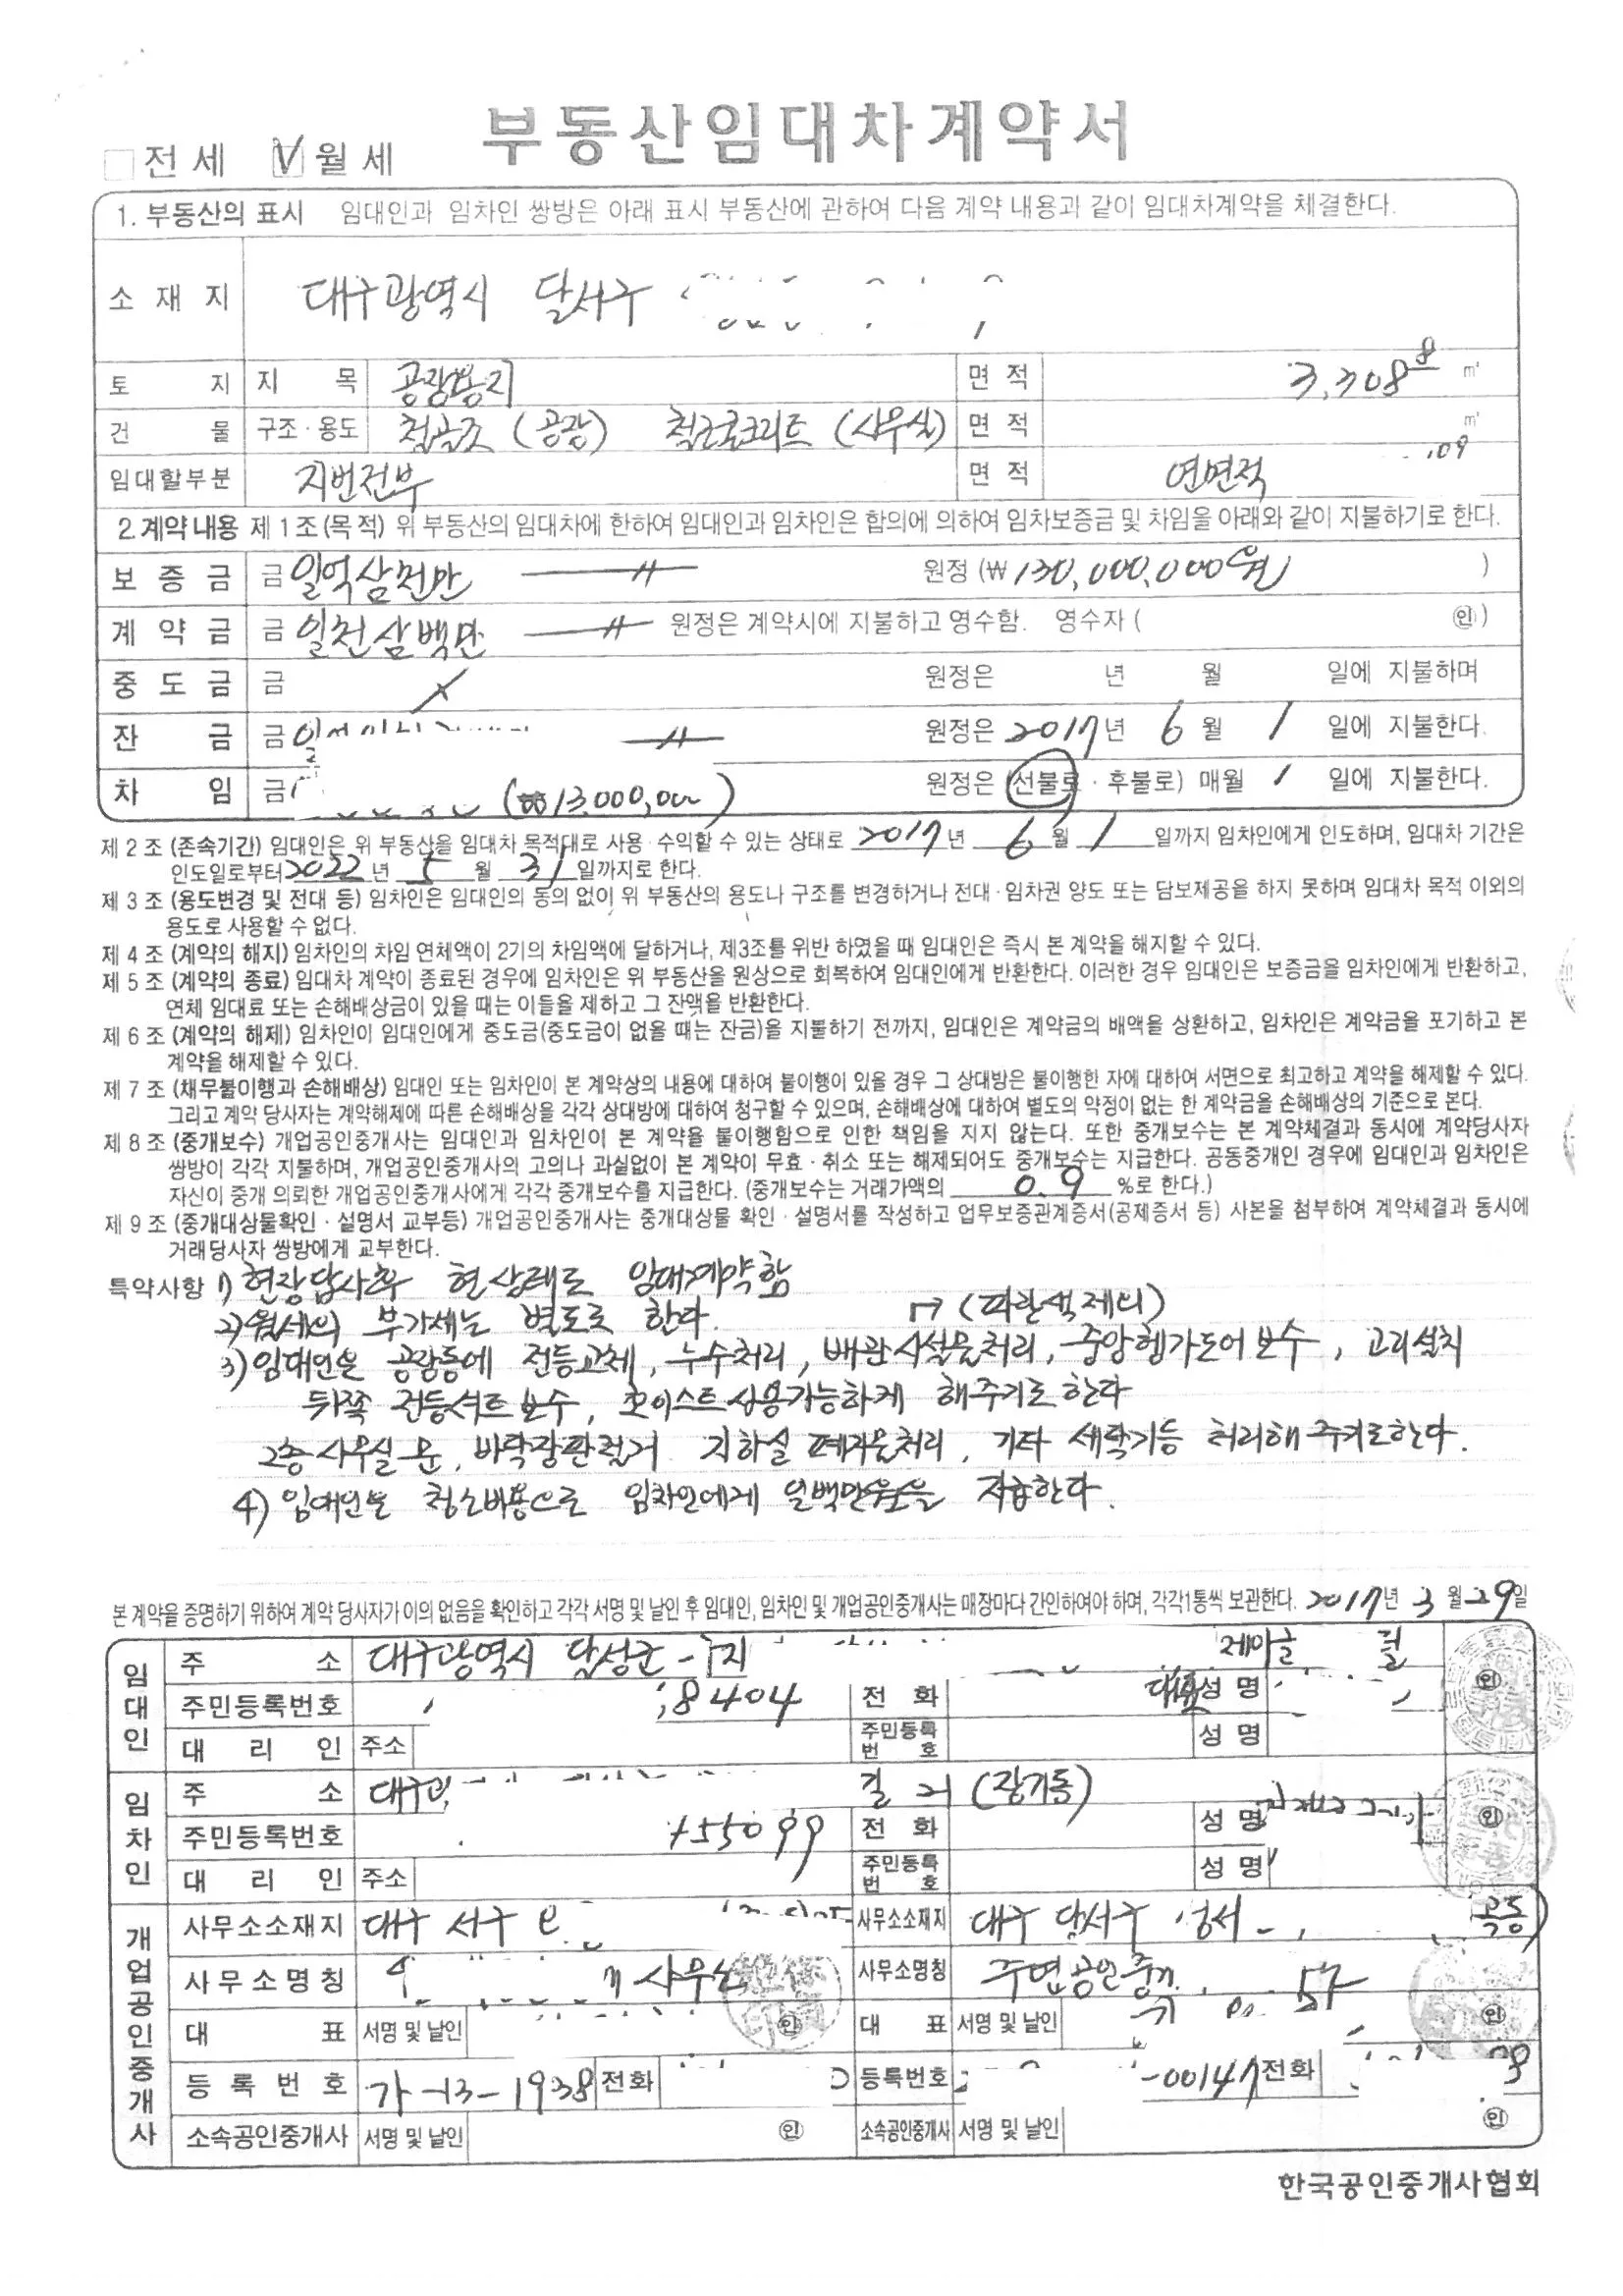 부동산임대차계약서
□ 전 세 ☑ 월 세
1. 부동산의 표시 임대인과 임차인 쌍방은 아래 표시 부동산에 관하여 다음 계약 내용과 같이 임대차계약을 체결한다.
소 재 지 대구광역시 달서구
토 지 지 목 공장용지 면 적 3,308.8 ㎡
건 물 구조·용도 철골조 (공장) 철근콘크리트 (사무실) 면 적 ㎡
임대할부분 지번전부 면 적 연면적 .09
2. 계약내용 제 1 조 (목 적) 위 부동산의 임대차에 한하여 임대인과 임차인은 합의에 의하여 임차보증금 및 차임을 아래와 같이 지불하기로 한다.
보 증 금 금 일억삼천만 원정 (₩ 130,000,000원 )
계 약 금 금 일천삼백만 원정은 계약시에 지불하고 영수함. 영수자 ( ㊞)
중 도 금 금 원정은 년 월 일에 지불하며
잔 금 금 원정은 2017 년 6 월 1 일에 지불한다.
차 임 금 (₩13,000,000) 원정은 (선불로 · 후불로) 매월 1 일에 지불한다.
제 2 조 (존속기간) 임대인은 위 부동산을 임대차 목적대로 사용·수익할 수 있는 상태로 2017 년 6 월 1 일까지 임차인에게 인도하며, 임대차 기간은
인도일로부터 2022 년 5 월 31 일까지로 한다.
제 3 조 (용도변경 및 전대 등) 임차인은 임대인의 동의 없이 위 부동산의 용도나 구조를 변경하거나 전대·임차권 양도 또는 담보제공을 하지 못하며 임대차 목적 이외의
용도로 사용할 수 없다.
제 4 조 (계약의 해지) 임차인의 차임 연체액이 2기의 차임액에 달하거나, 제3조를 위반 하였을 때 임대인은 즉시 본 계약을 해지할 수 있다.
제 5 조 (계약의 종료) 임대차 계약이 종료된 경우에 임차인은 위 부동산을 원상으로 회복하여 임대인에게 반환한다. 이러한 경우 임대인은 보증금을 임차인에게 반환하고,
연체 임대료 또는 손해배상금이 있을 때는 이들을 제하고 그 잔액을 반환한다.
제 6 조 (계약의 해제) 임차인이 임대인에게 중도금(중도금이 없을 때는 잔금)을 지불하기 전까지, 임대인은 계약금의 배액을 상환하고, 임차인은 계약금을 포기하고 본
계약을 해제할 수 있다.
제 7 조 (채무불이행과 손해배상) 임대인 또는 임차인이 본 계약상의 내용에 대하여 불이행이 있을 경우 그 상대방은 불이행한 자에 대하여 서면으로 최고하고 계약을 해제할 수 있다.
그리고 계약 당사자는 계약해제에 따른 손해배상을 각각 상대방에 대하여 청구할 수 있으며, 손해배상에 대하여 별도의 약정이 없는 한 계약금을 손해배상의 기준으로 본다.
제 8 조 (중개보수) 개업공인중개사는 임대인과 임차인이 본 계약을 불이행함으로 인한 책임을 지지 않는다. 또한 중개보수는 본 계약체결과 동시에 계약당사자
쌍방이 각각 지불하며, 개업공인중개사의 고의나 과실없이 본 계약이 무효·취소 또는 해제되어도 중개보수는 지급한다. 공동중개인 경우에 임대인과 임차인은
자신이 중개 의뢰한 개업공인중개사에게 각각 중개보수를 지급한다. (중개보수는 거래가액의 0.9 %로 한다.)
제 9 조 (중개대상물확인·설명서 교부등) 개업공인중개사는 중개대상물 확인·설명서를 작성하고 업무보증관계증서(공제증서 등) 사본을 첨부하여 계약체결과 동시에
거래당사자 쌍방에게 교부한다.
특약사항 1) 현장답사후 현 상태로 임대계약함
2) 월세의 부가세는 별도로 한다. (파란색 제외)
3) 임대인은 공장동에 전등교체, 누수처리, 배관시설물처리, 중앙행가도어 보수, 고리설치
뒤쪽 전등셔트보수, 호이스트 상용가능하게 해주기로한다
2층 사무실 문, 바닥장판철거 지하실 폐기물처리, 기타 세탁기등 처리해 주기로한다.
4) 임대인은 청소비용으로 임차인에게 일백만원을 지급한다.
본 계약을 증명하기 위하여 계약 당사자가 이의 없음을 확인하고 각각 서명 및 날인 후 임대인, 임차인 및 개업공인중개사는 매장마다 간인하여야 하며, 각각 1통씩 보관한다. 2017 년 3 월 29 일
임대인 주 소 대구광역시 달성군
주민등록번호 8404 전 화 대표 성 명 ㊞
대 리 인 주소 주민등록번호 성 명
임차인 주 소 대구 길 21 (장기동)
주민등록번호 55099 전 화 성 명 ㊞
대 리 인 주소 주민등록번호 성 명
개업공인중개사 사무소소재지 대구 서구 사무소소재지 대구 달서구
사무소명칭 사무소명칭
대 표 서명 및 날인 ㊞ 대 표 서명 및 날인 ㊞
등 록 번 호 가-13-1938 전화 등록번호 -00147 전화
소속공인중개사 서명 및 날인 ㊞ 소속공인중개사 서명 및 날인 ㊞
한국공인중개사협회